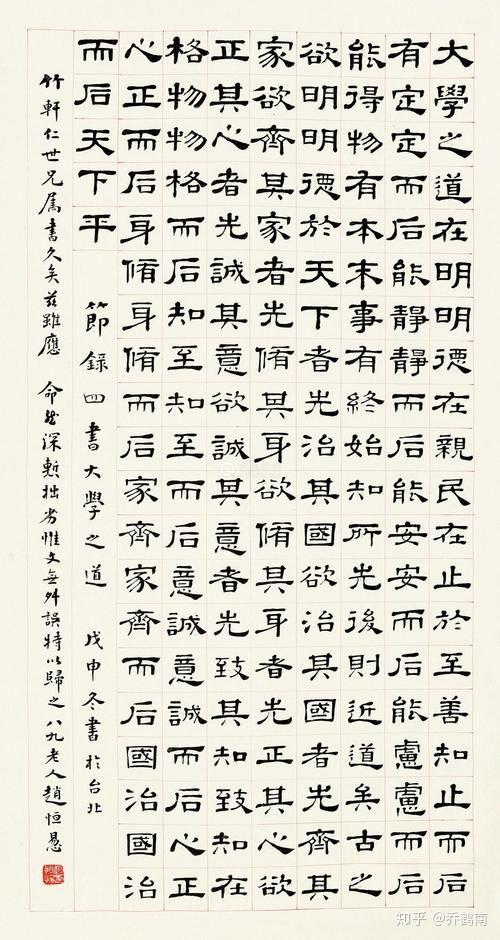 大學之道在明明德在親民在止於至善知止而后
有定定而后能靜靜而后能安安而后能慮慮而后
能得物有本末事有終始知所先後則近道矣古之
欲明明德於天下者先治其國欲治其國者先齊其
家欲齊其家者先脩其身欲脩其身者先正其心欲
正其心者先誠其意欲誠其意者先致其知致知在
格物物格而后知至知至而后意誠意誠而后心正
心正而后身脩身脩而后家齊家齊而后國治國治
而后天下平
節錄四書大學之道 戊申冬書於台北
竹軒仁世兄屬書久矣茲雖應 命然深慙拙劣惟文無舛誤特以歸之八九老人趙恒惖
知乎 @乔鹤南